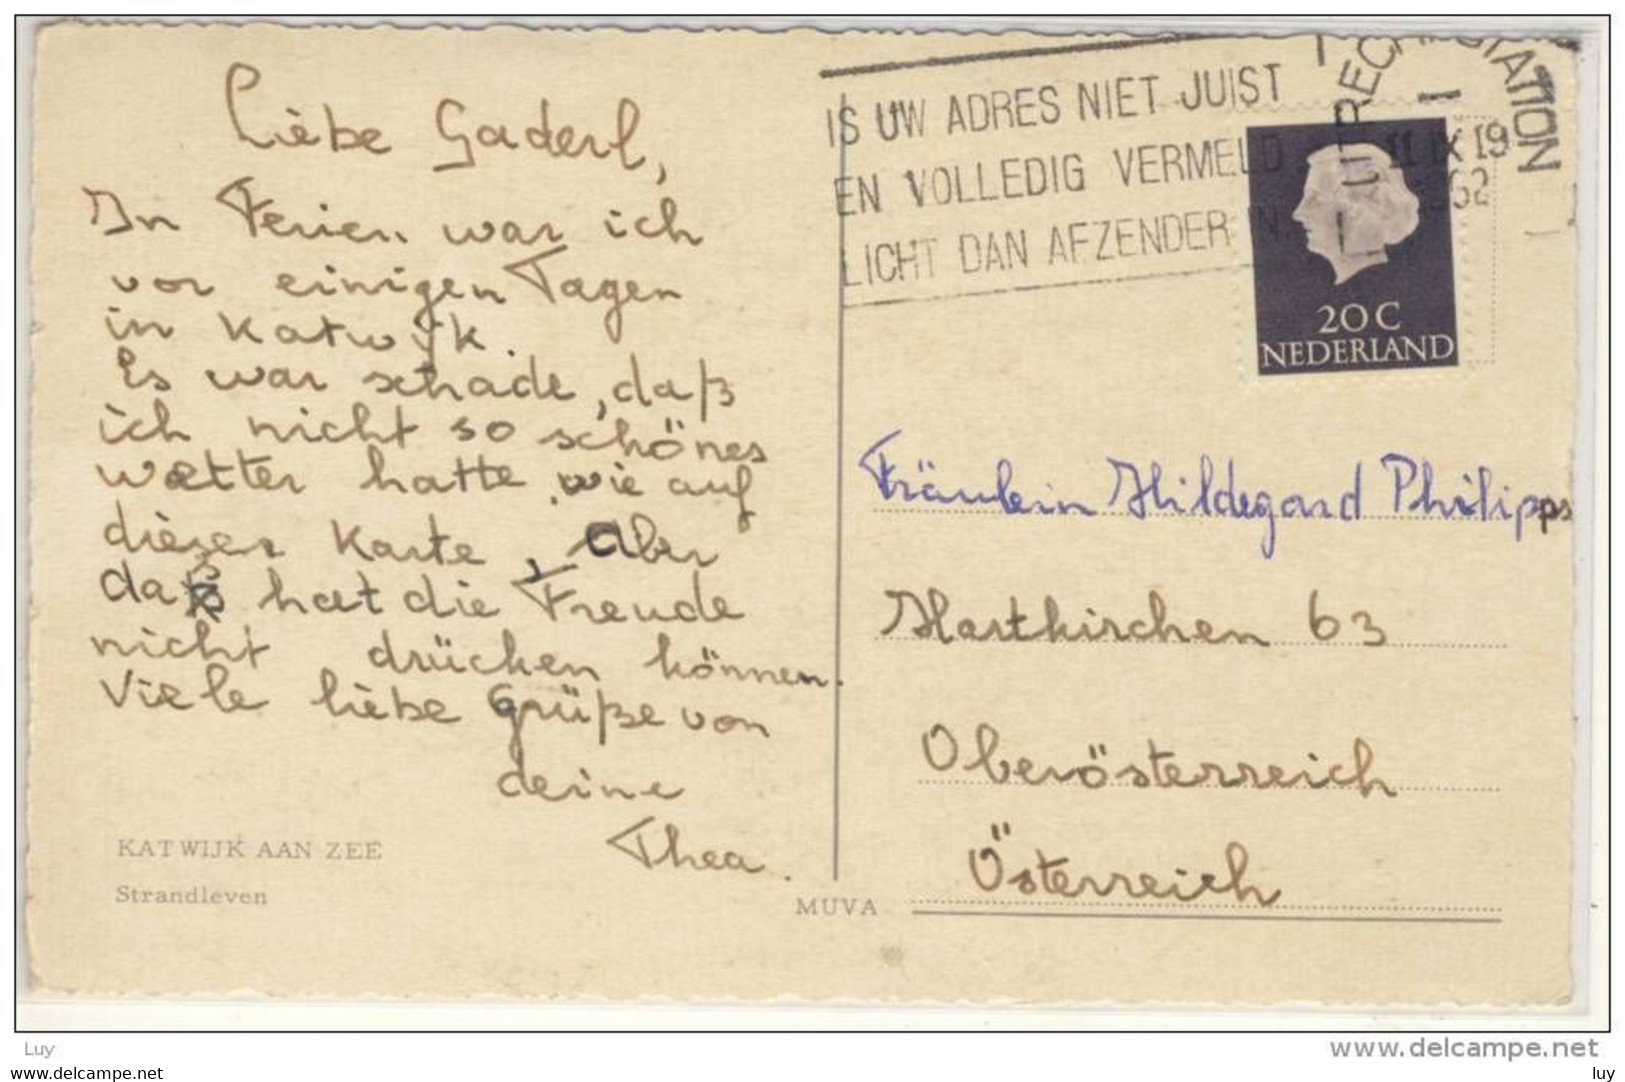 Liebe Gaderl,
In Ferien war ich
vor einigen Tagen
in Katwijk.
Es war schade, daß
ich nicht so schönes
wetter hatte, wie auf
dieser Karte, Aber
daß hat die Freude
nicht drücken können.
Viele liebe Grüße von
deine
Thea.
KATWIJK AAN ZEE
Strandleven
MUVA
IS UW ADRES NIET JUIST
EN VOLLEDIG VERMELD
LICHT DAN AFZENDER IN
UTRECHT STATION
11 IX 19
62
20 C
NEDERLAND
Fräulein Hildegard Philipps
Hartkirchen 63
Oberösterreich
Österreich
Luy
www.delcampe.net
www.delcampe.net
luy